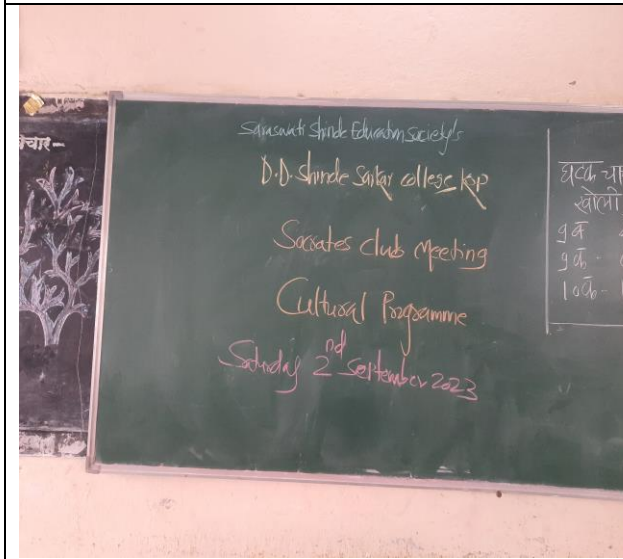 Saraswati Shinde Education Society's
D.D. Shinde Sarkar college KOP
Socrates Club Meeting
Cultural Programme
Saturday 2nd September 2023
घटक चा
खोली
9 ब
9 क -
10 क -